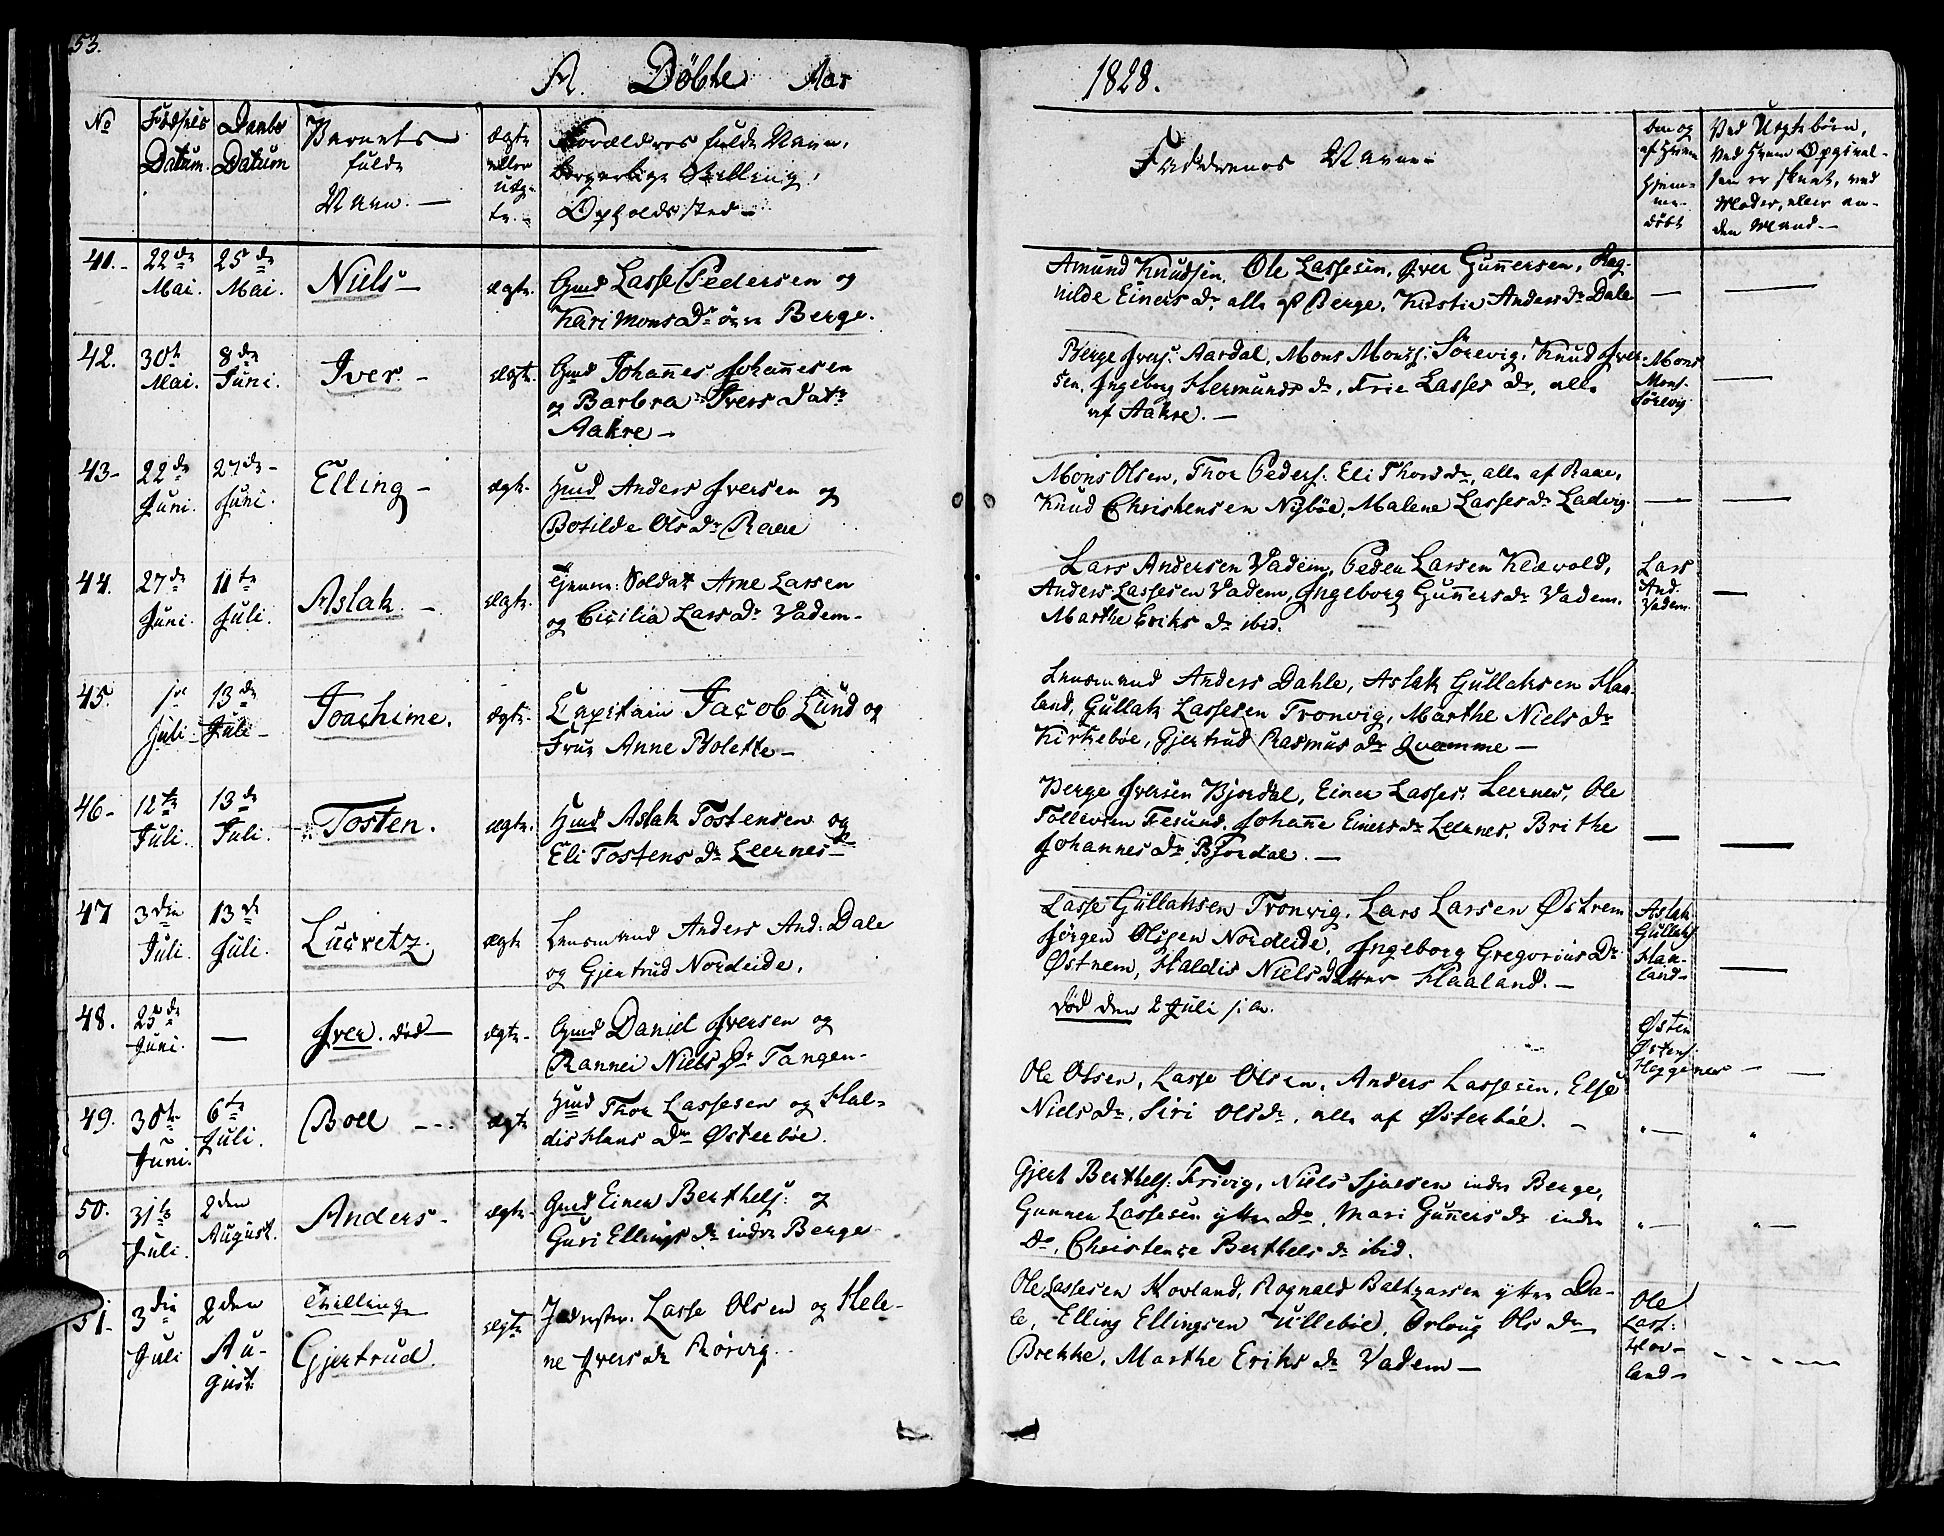 53.
A. Döbte Aar 1828.
No
Födsels Datum.
Daabs Datum
Barnets fulde Navn. —
ægte eller uæg- te. -
Forældres fulde Navn, borgerlige Stilling, Opholdssted —
Faddernes Navne —
om og af Hvem hjem- me- döbt
Ved Uægte börn, ved hvem Opgivel- sen er skeet, ved Moder, eller an- den Mand. —
41. -
22de Mai.
25de Mai.
Niels —
ægte.
Gmd Lasse Pedersen og
Kari Mons Dr övre Berge.
Amund Knudsen, Ole Lassesen, Iver Gunnersen, Rag-
nilde Einers dr alle af Berge, Kirstie Anders dr Dale
42.
30te Mai.
8de Juni.
Iver. -
ægte.
Gmd Johannes Johannesen
og Barbra Ivers Datr
Aakre —
Berge Ivers: Aardal, Mons Mons: Sörevig, Knud Iver-
sen, Ingeborg Hermunds dr, Frie Lasses dr, alle
af Aakre. —
Mons
Mons.
Sörevig
43 -
22de Juni.
27de - Juni.
Elling -
ægte.
Hmd Anders Iversen og
Botilde Ols Dr Raae
Mons Olsen, Thor Peders: Eli Thors dr, alle af Raae,
Knud Christensen Nyböe, Malene Lasses dr Ladvig.
44.
27de Juni.
11te Juli.
Aslak. -
ægte.
Gevor: Soldat Arne Larsen
og Cicilia Lars Dr Vadem -
Lars Andersen Vadem, Peder Larsen Klævold,
Anders Lassesen Vadem, Ingeborg Gunners dr Vadem.
Marthe Eriks dr ibid.
Lars
And.
Vadem.
45.
1ste Juli -
13de Juli -
Joachime.
ægte.
Capitain Jacob Lund og
Frue Anne Bolette —
Lensmand Anders Dahle, Aslak Gullaksen Haa-
land, Gullak Lassesen Tronvig, Marthe Niels dr
Kirkebøe, Gjertrud Rasmus dr Qvamme —
46 -
12te Juli.
13de Juli.
Tosten.
ægte.
Hmd Aslak Tostensen og
Eli Tostens Dr Leernes —
Berge Iversen Bjordal, Einer Lasses: Leernes, Ole
Tollevsen Fesund, Johanne Einers dr Leernes, Brithe
Johannes dr Bjordal. —
47
3die Juli.
13de Juli.
Lucretz.
ægte
Lensmand Anders And: Dale
og Gjertrud Nordeide.
Lasse Gullaksen Tronvig, Lars Larsen Østrem
Jörgen Olsen Nordeide, Ingeborg Gregorius Dr
Østrem, Haldis Niels Datter Haaland. —
Aslak
Gullaks
Haa-
land -
48.
25de Juni.
—
Iver. död —
ægte -
Gmd Daniel Iversen og
Rannei Niels Dr Tangen -
död den 2 Juli s: a.
Østen
Østens:
49.
30te Juni.
6te Juli.
Boel - - -
ægte
Hmd Thor Lassesen og Hal-
dis Hans Dr Østerböe.
Ole Olsen, Lasse Olsen, Anders Lassesen, Else
Niels dr, Siri Ols dr, alle af Østerböe. -
50.
31te Juli.
2den August.
Anders -
ægte -
Gmd Einer Berthels: og
Guri Ellings dr indre Berge
Gjert Berthels: Frivig, Niels Sjursen indre Berge,
Gunner Lassesen ytter Do, Mari Gunners dr indre
Do, Christence Berthels dr ibid.
51 -
3die Juli
2den Au- gust
Tvilling
Gjertrud.
ægte
Lasse Olsen og Hele-
ne Ivers dr Rörvig -
Ole Lassesen Hovland, Rognald Baltzarsen ytter Da-
le, Elling Ellingsen Tulleböe, Orloug Ols dr
Brekke, Marthe Eriks dr Vadem —
Ole
Lass:
Hov-
land -